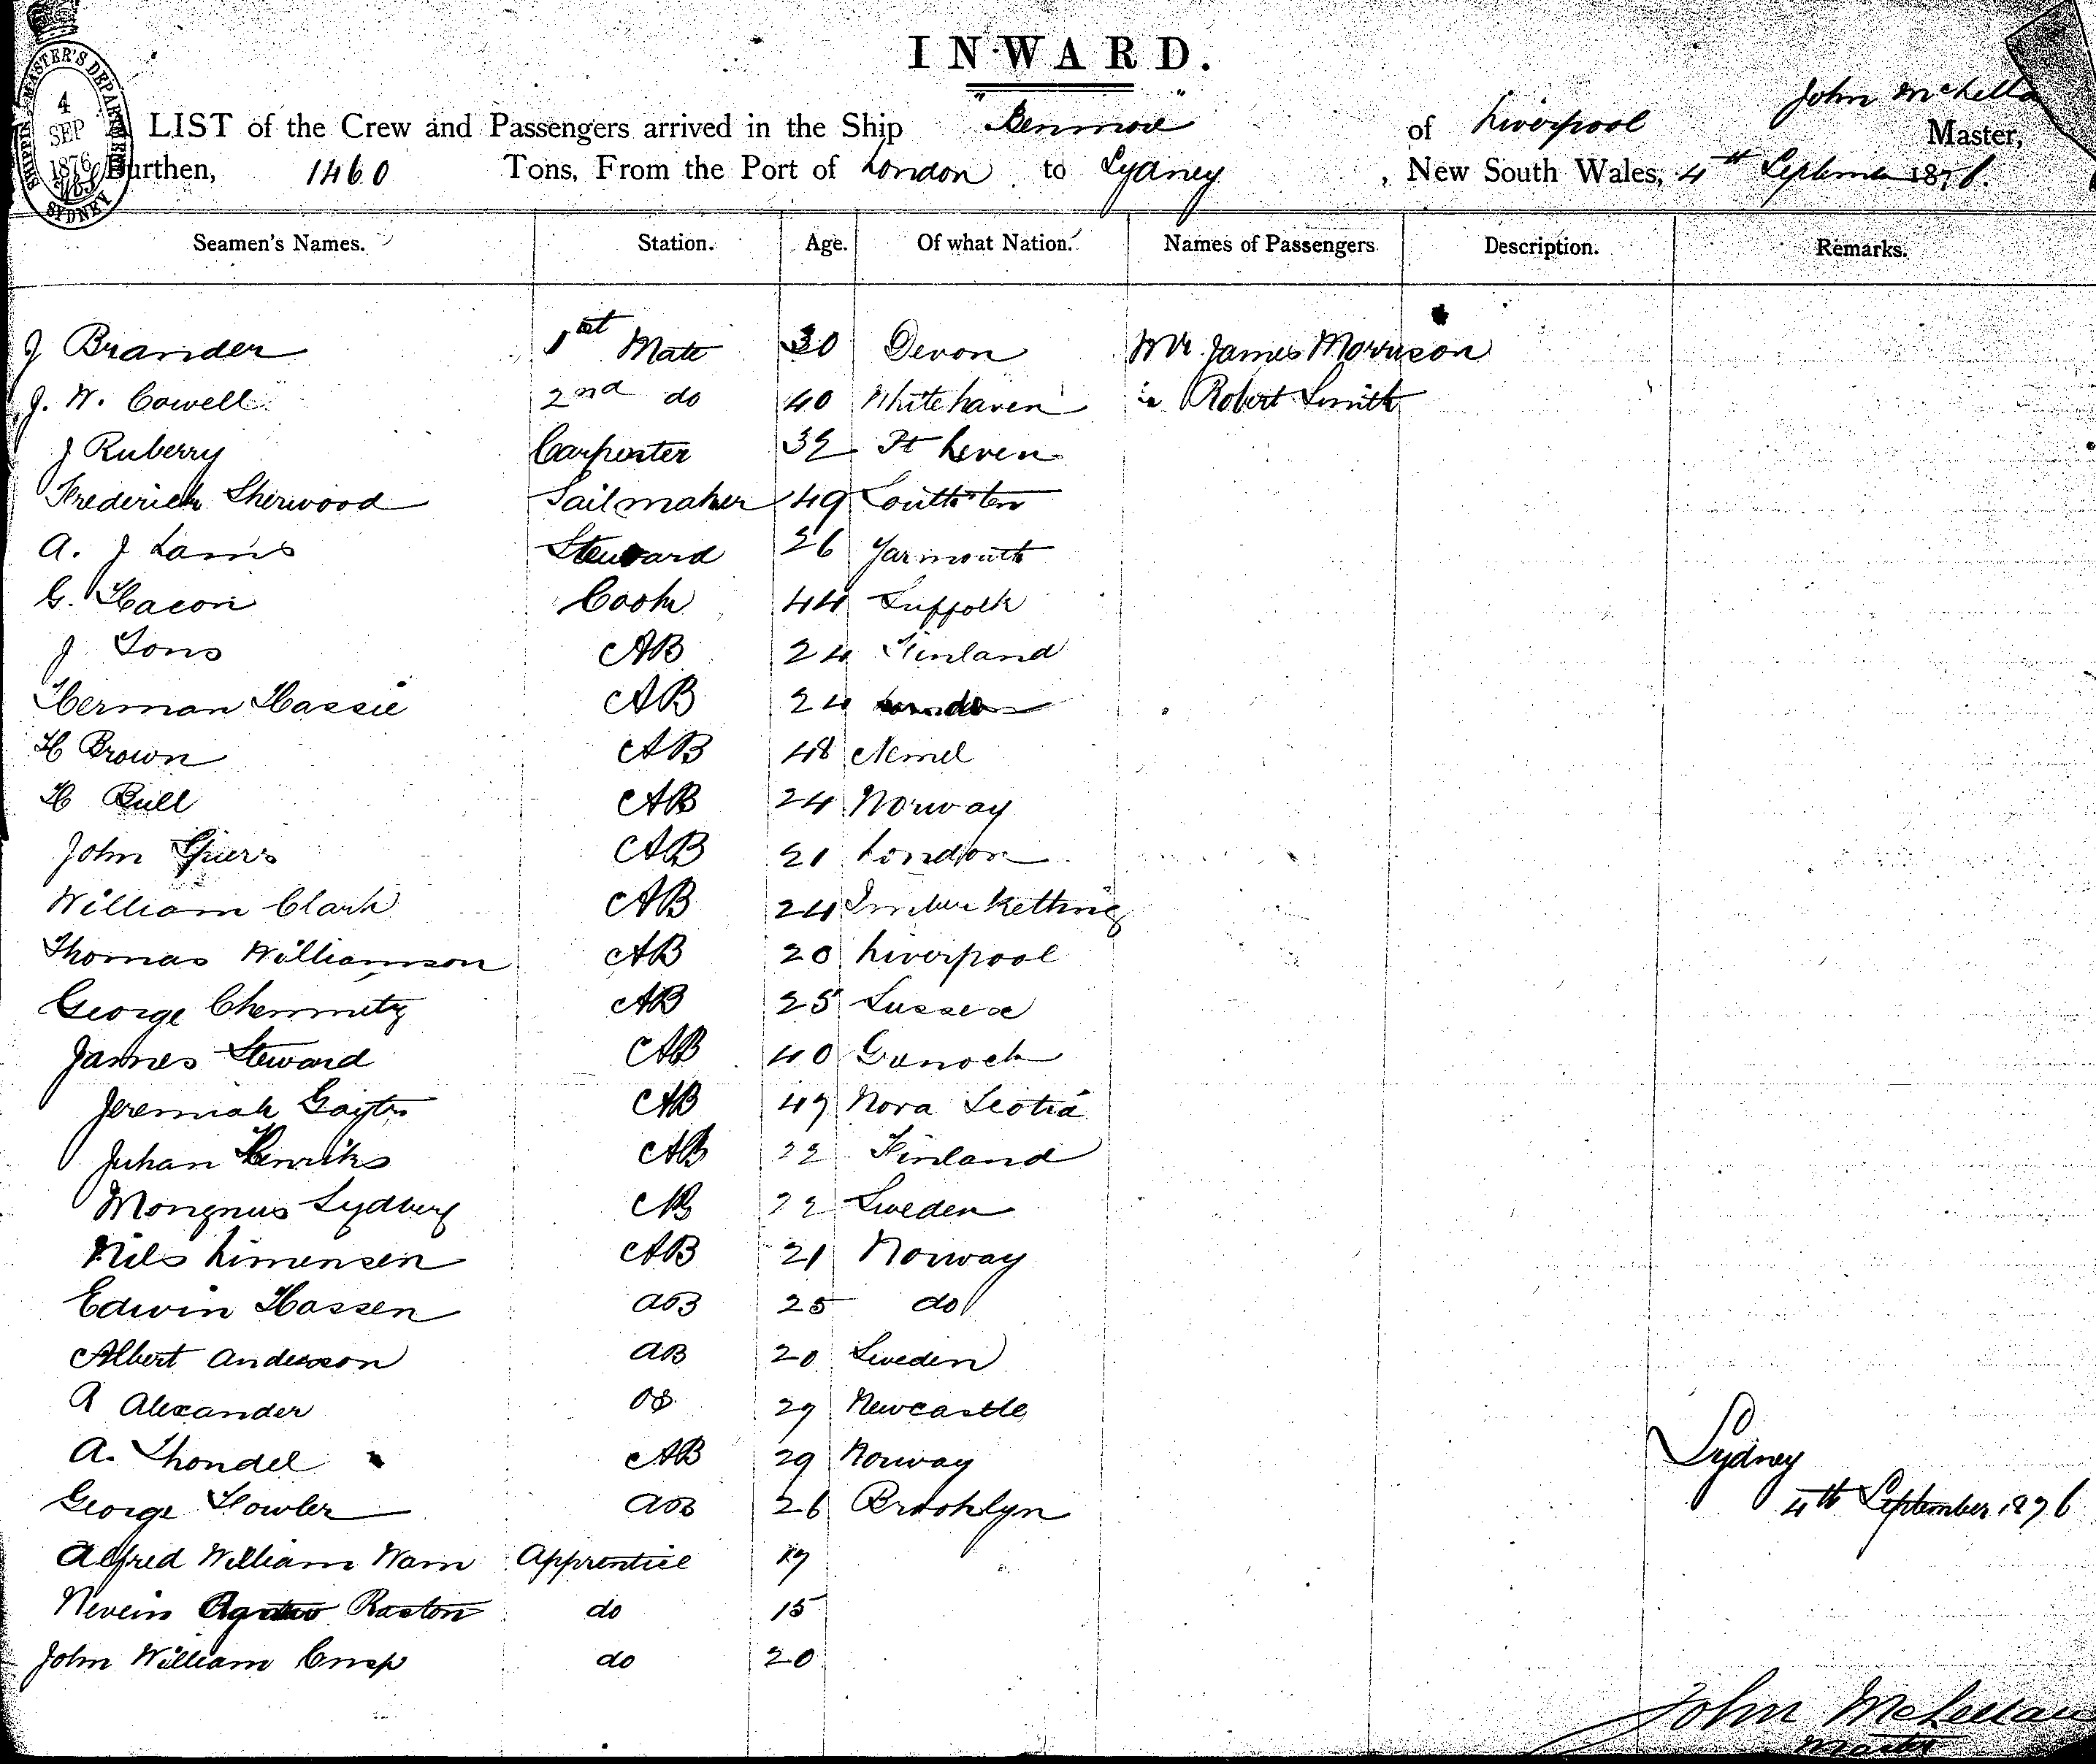 INWARD.
SHIPPING MASTER'S DEPARTMENT
4
SEP
1876
SYDNEY
John McLella
A LIST of the Crew and Passengers arrived in the Ship "Benmore" of Liverpool Master,
Burthen, 1460 Tons, From the Port of London to Sydney, New South Wales, 4th September 1876.
Seamen's Names. Station. Age. Of what Nation. Names of Passengers Description. Remarks.
J Brander 1st Mate 30 Devon Mr. James Morrison
J. W. Cowell 2nd do 40 Whitehaven " Robert Smith
J Ruberry Carpenter 32 Leven
Frederick Sherwood Sailmaker 49 Southton
A. J Lams Steward 26 Yarmouth
G. Hacon Cook 44 Suffolk
J Sons AB 24 Finland
Herman Hassie AB 24 London
H Brown AB 48 Memel
H Bull AB 24 Norway
John AB 21 London
William Clark AB 24
Thomas Williamson AB 20 Liverpool
George Chemnitz AB 25 Sussex
James Steward AB 40
Jeremiah AB 47 Nova Scotia
Juhan Henriks AB 22 Finland
Mongnus Sydberg AB 22 Sweden
Nils Simensen AB 21 Norway
Edwin Hassen AB 25 do
Albert Anderson AB 20 Sweden
A Alexander OS 29 Newcastle
A. Thondel AB 29 Norway
George Fowler AB 26 Brooklyn
Alfred William Wam Apprentice 17
Nevein Raston do 15
John William Crisp do 20
Sydney
4th September 1876
John McLellan
Master